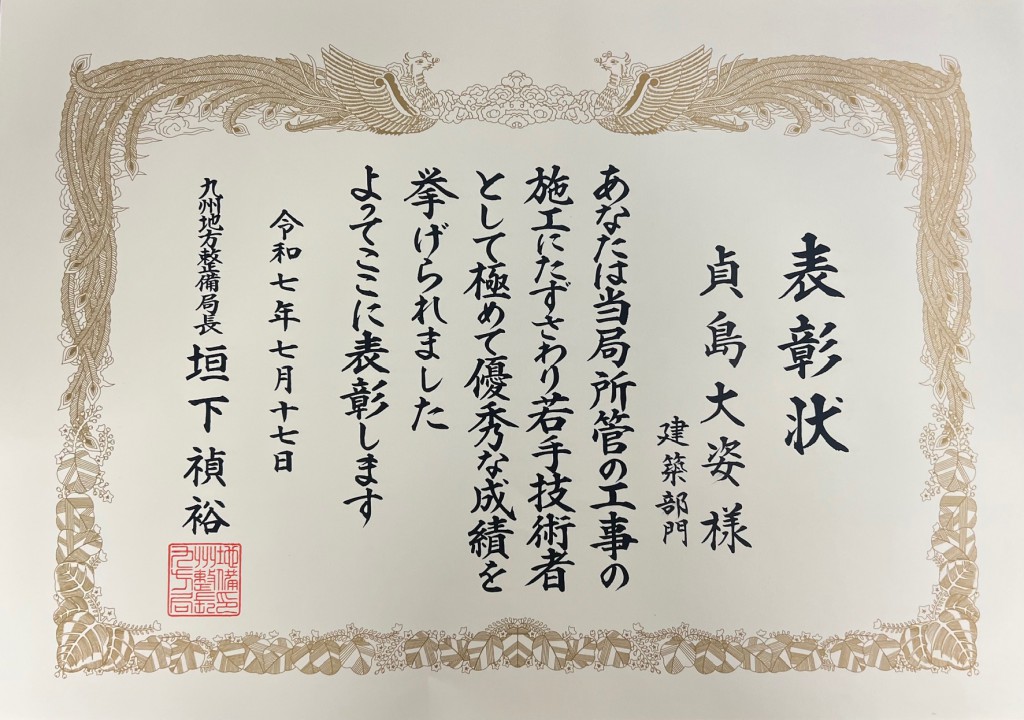 表彰状
貞島大姿様
建築部門
あなたは当局所管の工事の
施工にたずさわり若手技術者
として極めて優秀な成績を
挙げられました
よってここに表彰します
令和七年七月十七日
九州地方整備局長 垣下禎裕